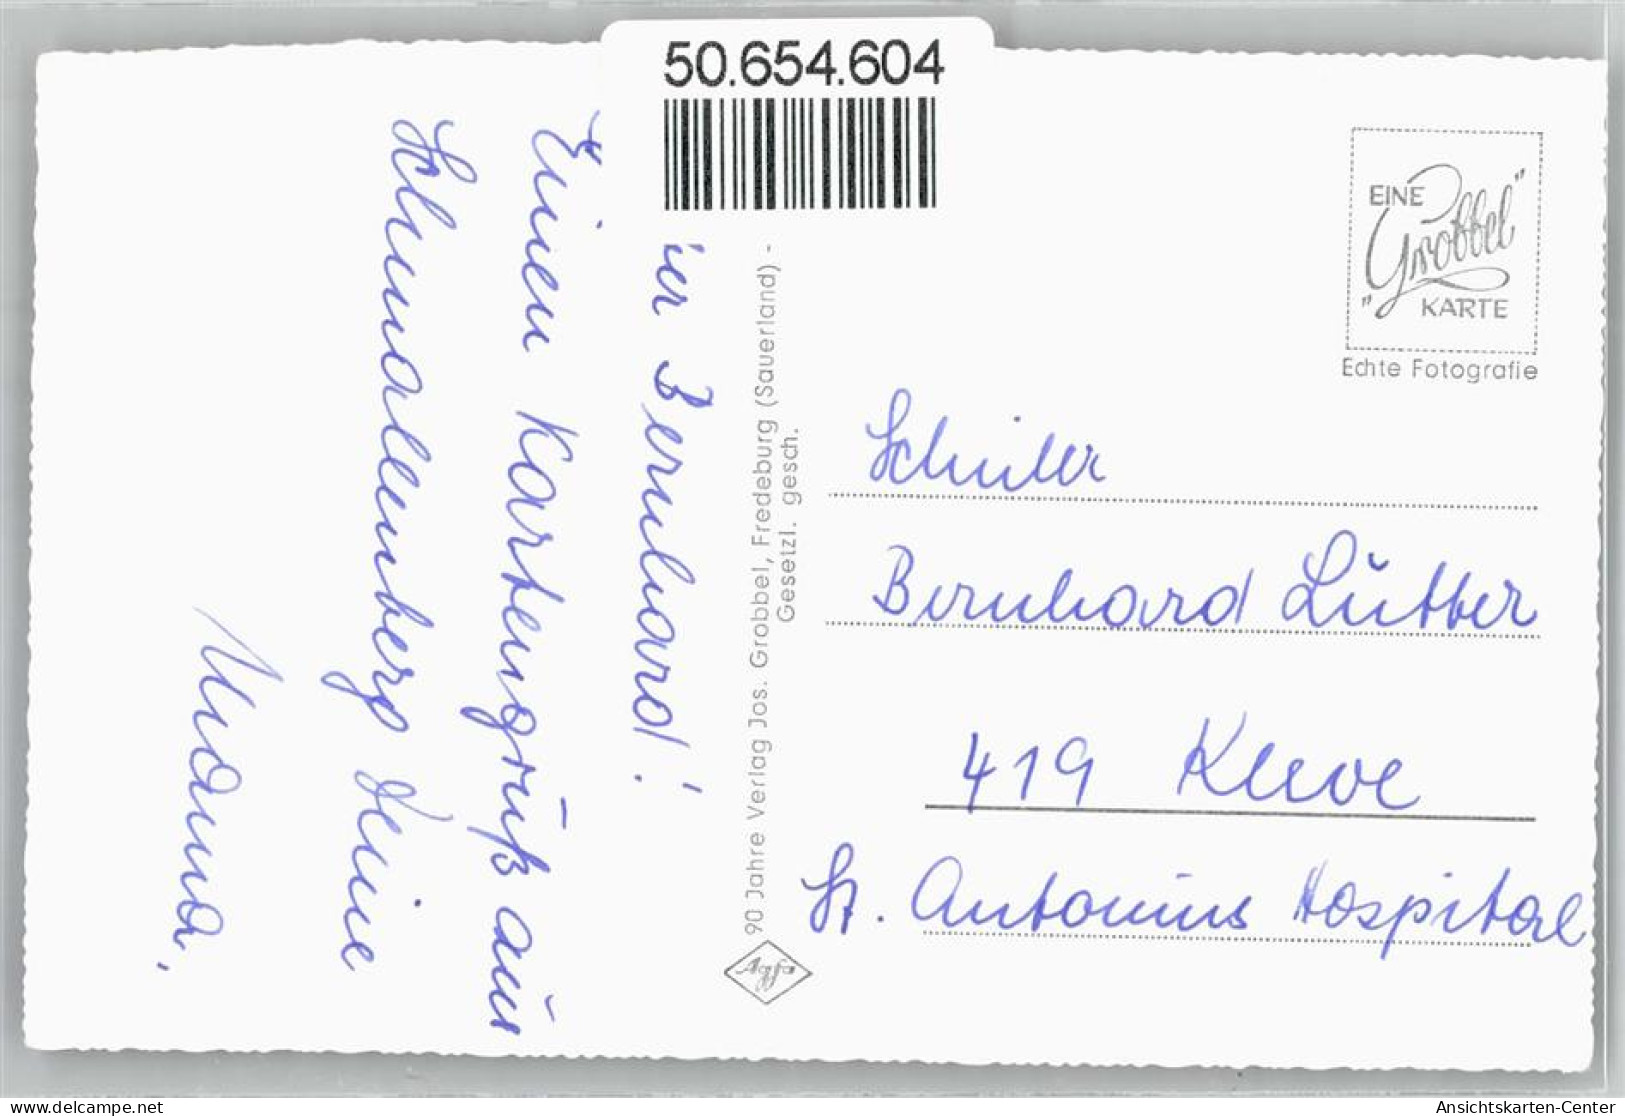 50.654.604
'er Bernhard!
Einen Kartengruß aus
Schmallenberg Deine
Mama.
90 Jahre Verlag Jos. Grobbel, Fredeburg (Sauerland) -
Gesetzl. gesch.
Agfa
EINE
"Grobbel"
KARTE
Echte Fotografie
Schüler
Bernhard Lütter
419 Kleve
St. Antonius Hospital
delcampe.net
Ansichtskarten-Center